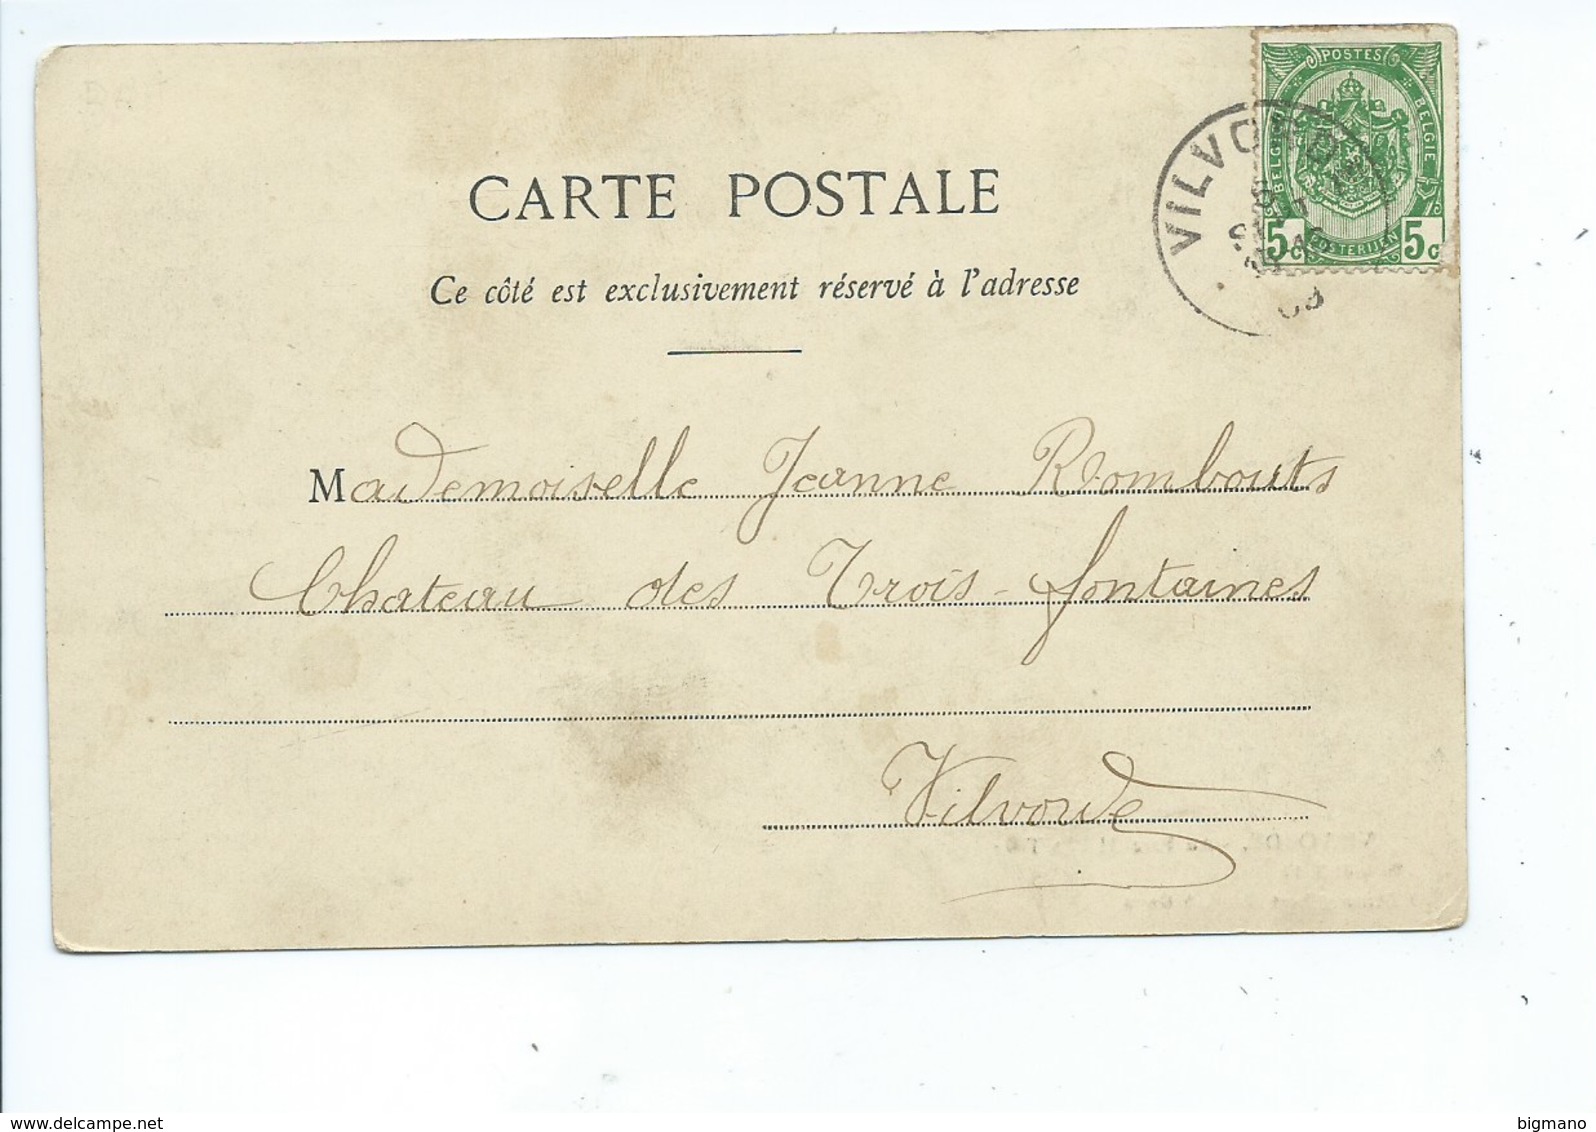 POSTES
BELGIQUE
BELGIE
5c 5c
POSTERIJEN
VILVO
03
CARTE POSTALE
Ce côté est exclusivement réservé à l'adresse
Mademoiselle Jeanne Rombouts
Chateau des Trois-fontaines
Vilvorde
www.delcampe.net
bigmano